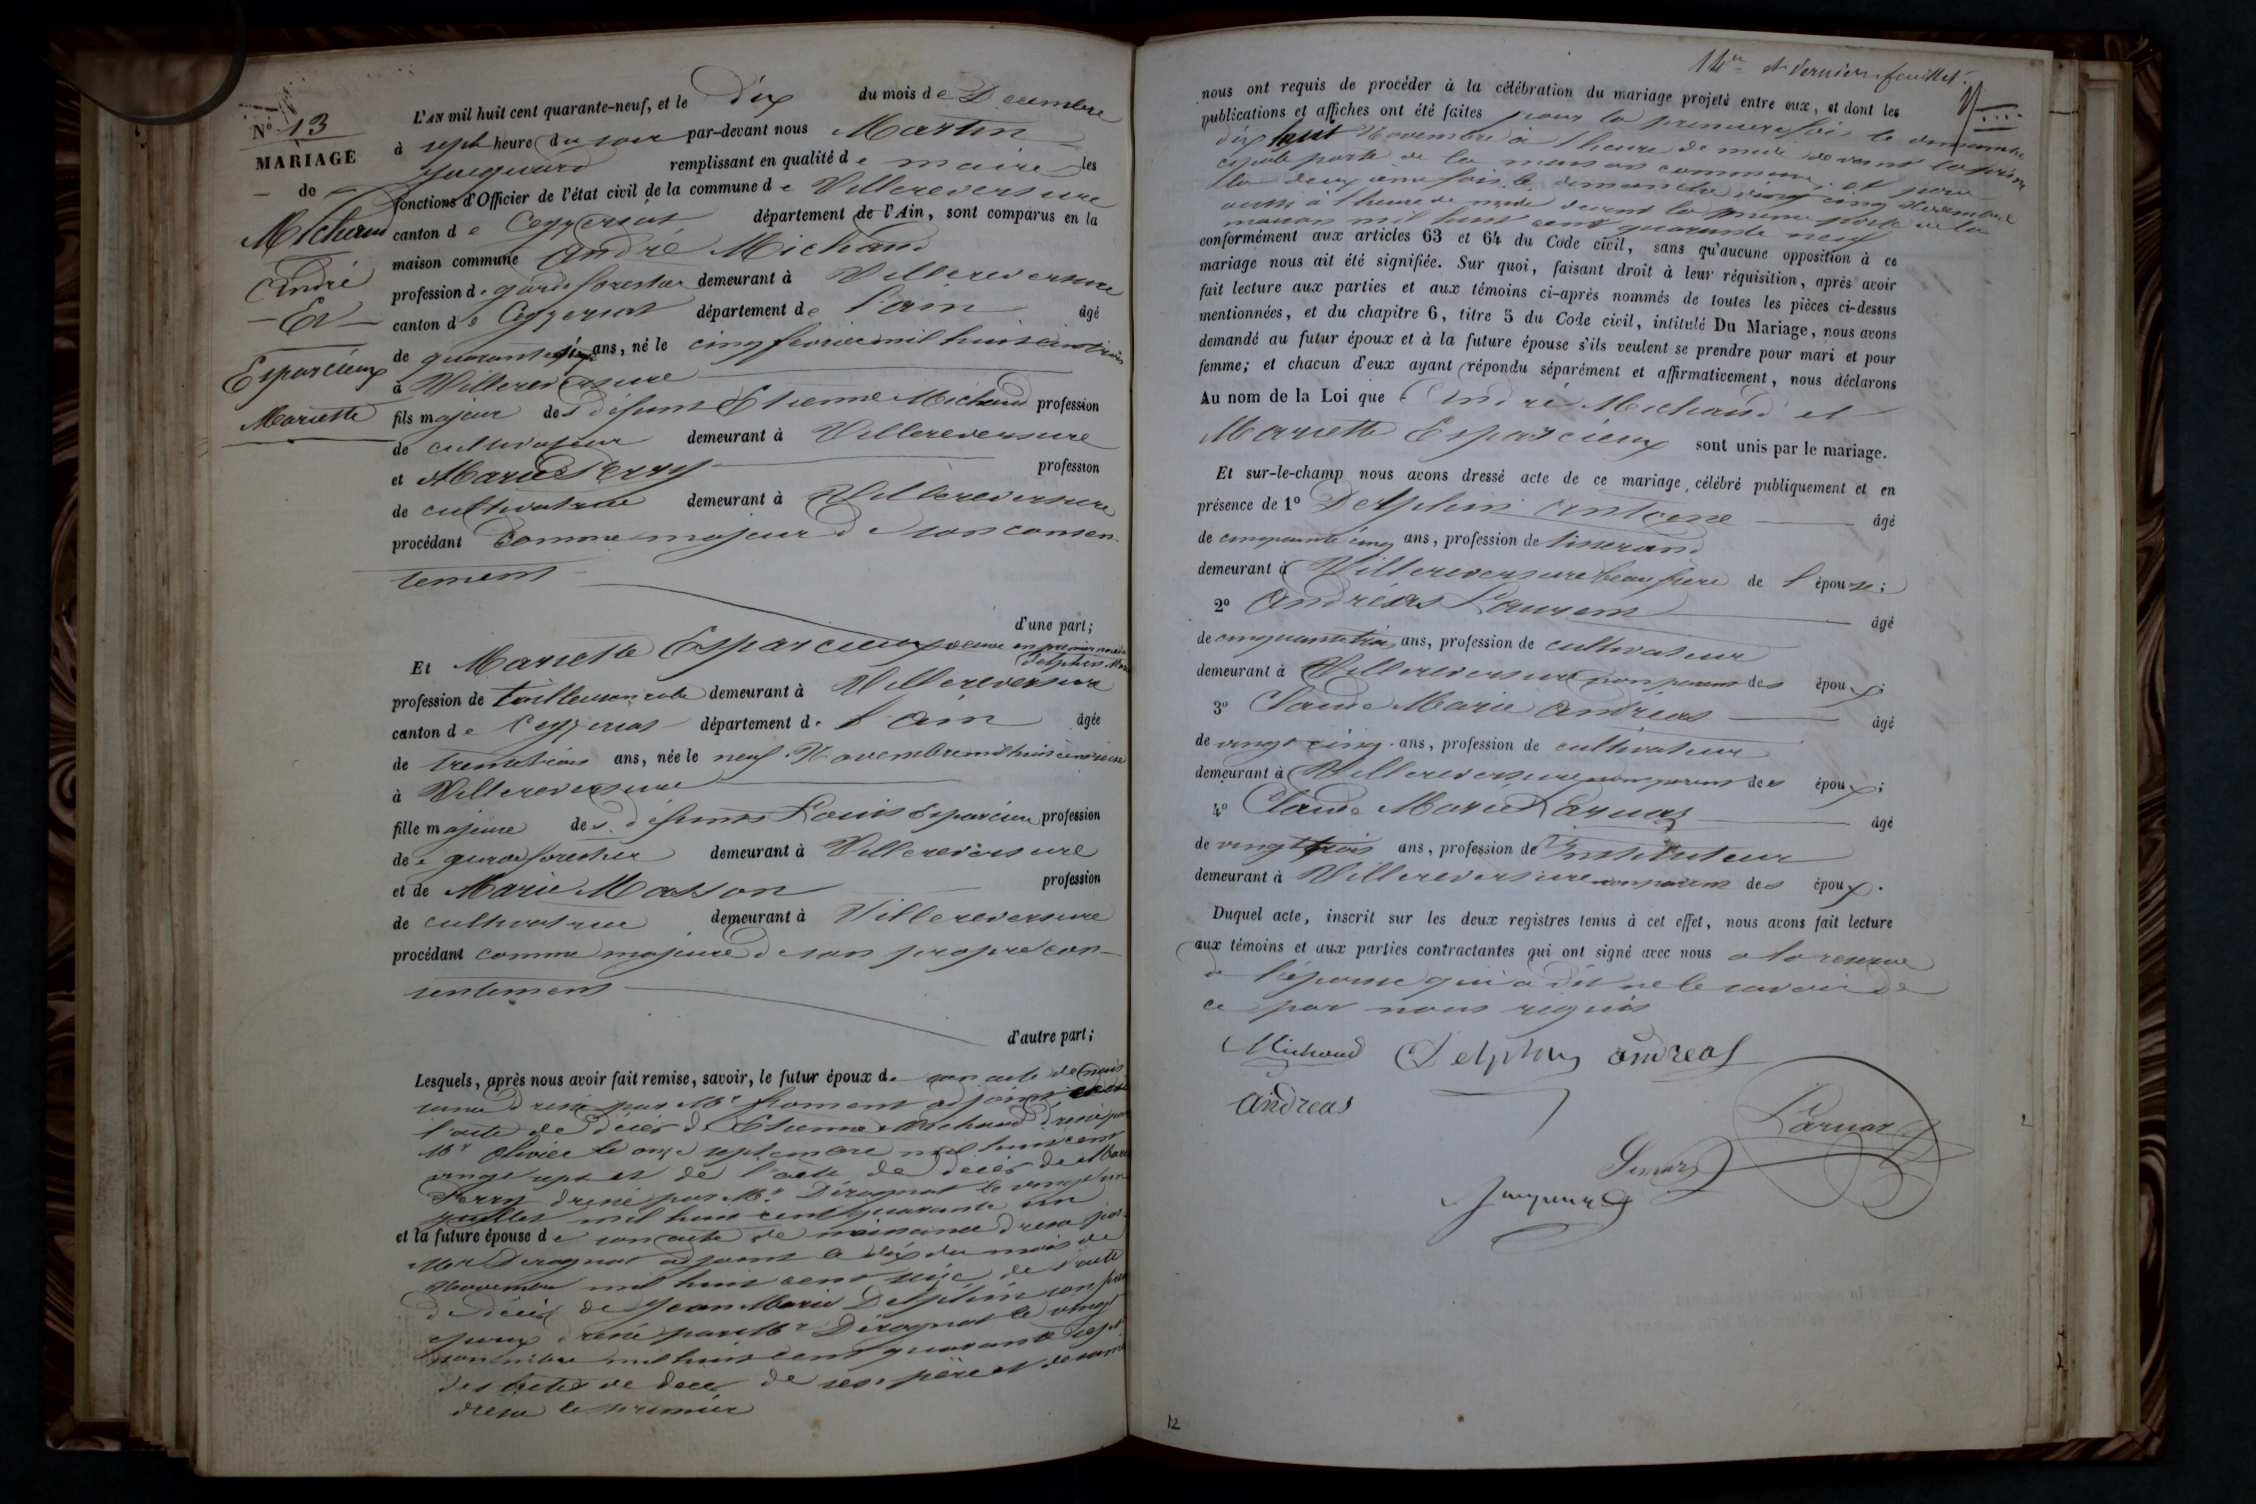 N° 13
MARIAGE
de
Michaud
André
Et
Esparcieux
Mariette
L'AN mil huit cent quarante-neuf, et le dix du mois de Decembre
à sept heure du soir par-devant nous Martin
Jacquard remplissant en qualité de maire les
fonctions d'Officier de l'état civil de la commune de Villereversure
canton de Ceyzeriat département de l'Ain, sont comparus en la
maison commune André Michaud
profession de garde forestier demeurant à Villereversure
canton de Ceyzeriat département de l'ain âgé
de quarante six ans, né le cinq fevrier mil huit cent trois
à Villereversure
fils majeur des défunts Etienne Michaud profession
de cultivateur demeurant à Villereversure
et Marie Perry profession
de cultivatrice demeurant à Villereversure
procédant comme majeur de son consen-
tement
d'une part;
Et Mariette Esparcieux veuve en premier
Delphin
profession de tailleuse demeurant à Villereversure
canton de Ceyzeriat département de l'ain âgée
de trente trois ans, née le neuf Novembre mil huit cent seize
à Villereversure
fille majeure des défunts Louis Esparcieux profession
de garde forestier demeurant à Villereversure
et de Marie Masson profession
de cultivatrice demeurant à Villereversure
procédant comme majeure de son propre con-
sentement
d'autre part;
Lesquels, après nous avoir fait remise, savoir, le futur époux de son acte de nais
sance dressé par Mr froment adjoint
l'acte de décès de Etienne Michaud dressé par
Mr Olivier le onze septembre mil huit cent
vingt sept et de l'acte de décès de Marie
Perry dressé par Mr Dérognat le vingt un
juillet mil huit cent quarante un
et la future épouse de son acte de naissance dressé par
Mr Derognat adjoint le dix du mois de
Novembre mil huit cent seize de l'acte
de décès de Jean Marie Delphin son
époux dressé par Mr Dérognat le vingt
mil huit cent quarante sept
des actes de décès de ses père et
dressé le premier
14e et dernier feuillet.
nous ont requis de procéder à la célébration du mariage projeté entre eux, et dont les
publications et affiches ont été faites pour la premiere fois le dimanche
dix huit Novembre à l'heure de midi devant la
porte de la maison commune, et pour
la deuxieme fois le dimanche vingt cinq Novembre
aussi à l'heure de midi devant la meme porte de la
maison mil huit cent quarante neuf
conformément aux articles 63 et 64 du Code civil, sans qu'aucune opposition à ce
mariage nous ait été signifiée. Sur quoi, faisant droit à leur réquisition, après avoir
fait lecture aux parties et aux témoins ci-après nommés de toutes les pièces ci-dessus
mentionnées, et du chapitre 6, titre 5 du Code civil, intitulé Du Mariage, nous avons
demandé au futur époux et à la future épouse s'ils veulent se prendre pour mari et pour
femme; et chacun d'eux ayant répondu séparément et affirmativement, nous déclarons
Au nom de la Loi que André Michaud et
Mariette Esparcieux sont unis par le mariage.
Et sur-le-champ nous avons dressé acte de ce mariage, célébré publiquement et en
présence de 1° Delphin Antoine âgé
de cinquante cinq ans, profession de tisserand
demeurant à Villereversure beau frere de l'épouse;
2° Andréas Laurent âgé
de cinquante trois ans, profession de cultivateur
demeurant à Villereversure non parent des époux;
3° Claude Marie Andréas âgé
de vingt cinq ans, profession de cultivateur
demeurant à Villereversure non parent des époux;
4° Claude Marie Laruas âgé
de vingt trois ans, profession de Instituteur
demeurant à Villereversure non parent des époux.
Duquel acte, inscrit sur les deux registres tenus à cet effet, nous avons fait lecture
aux témoins et aux parties contractantes qui ont signé avec nous a la reserve
de l'épouse qui a dit ne le savoir de
ce par nous requis
Michaud Delphin andreas
andreas
Laruas
Jacquard
12